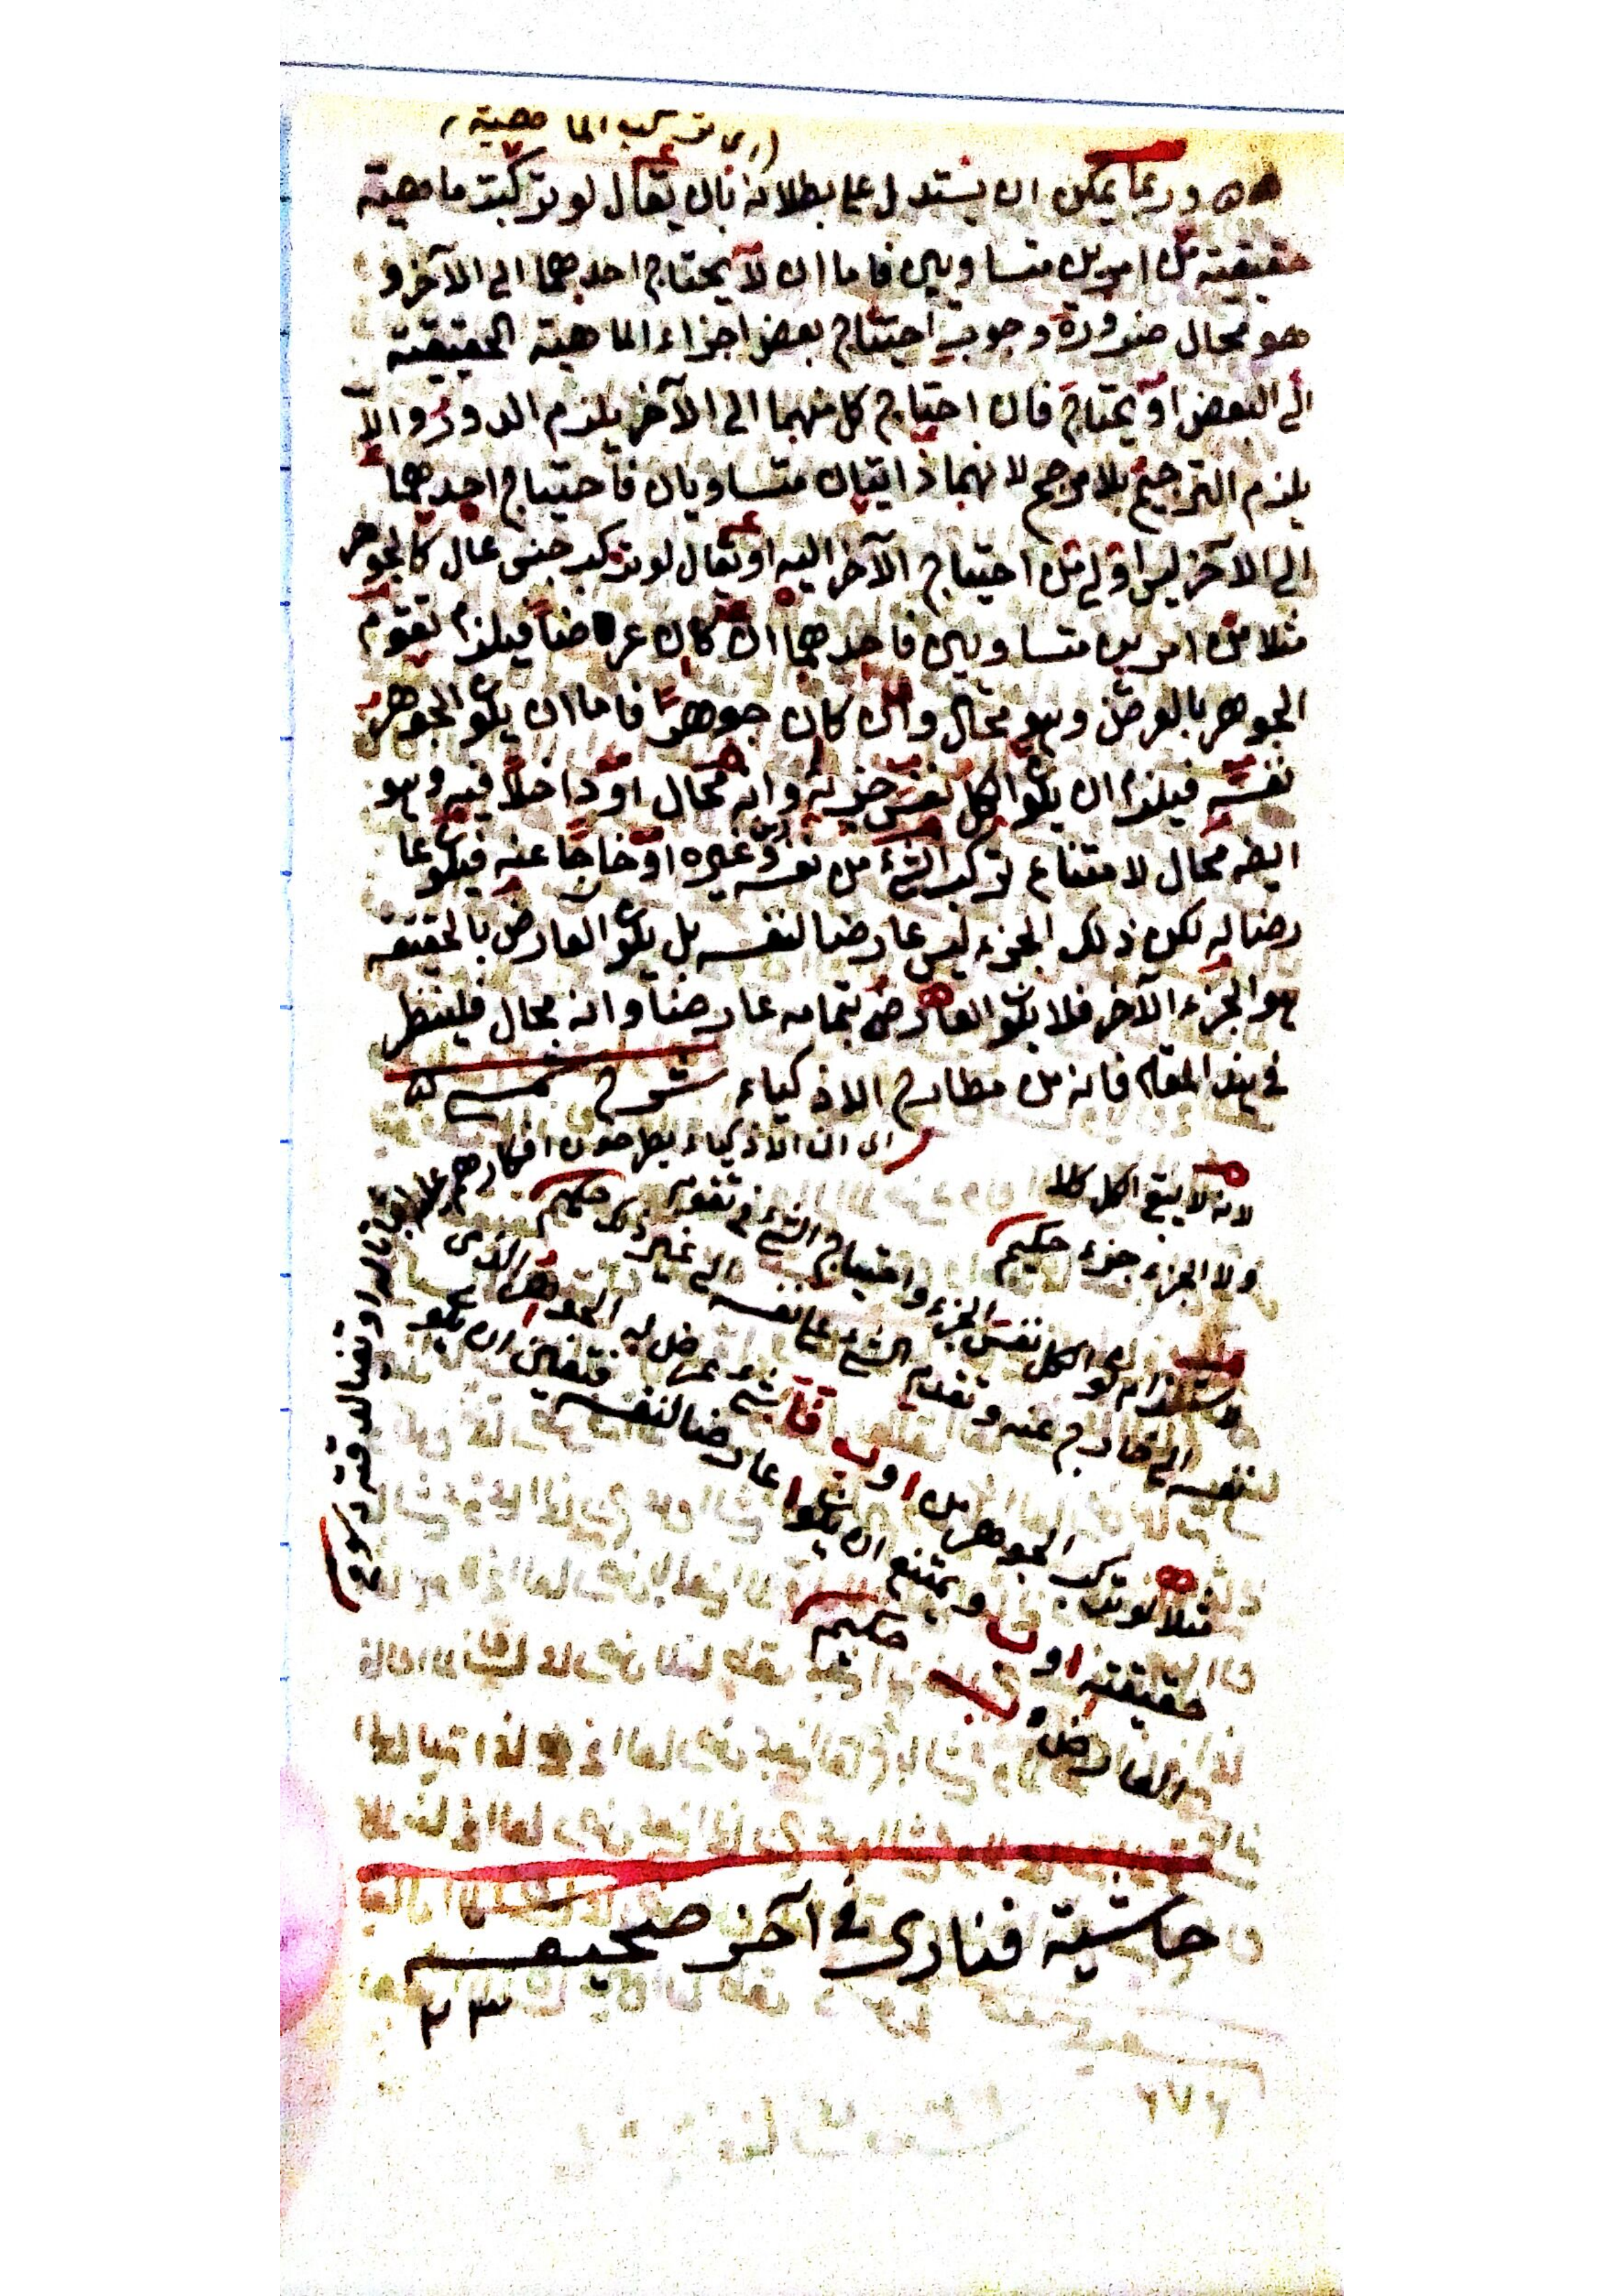 (اى تركيب الماهية)
وربما يمكن ان يستدل على بطلانه بان يقال لو تركبت ماهية
حقيقية من امرين متساويين فاما ان لا يحتاج احدهما الى الآخر و
هو محال ضرورة وجوب احتياج بعض اجزاء الماهية الحقيقية
الى البعض او يحتاج فان احتاج كل منهما الى الآخر يلزم الدور والا
يلزم الترجيح بلا مرجح لانهما ذاتيان متساويان فاحتياج احدهما
الى الآخر ليس اولى من احتياج الآخر اليه او يقال لو تركب جنس عال كالجوهر
مثلا من امرين متساويين فاحدهما ان كان عرضا فيلزم تقوم
الجوهر بالعرض وهو محال وان كان جوهرا فاما ان يكون الجوهر
نفسه فيلزم ان يكون الكل نفس جزئه وانه محال او داخلا فيه وهو
ايضه محال لامتناع تركب الشئ من نفسه وغيره او خارجا عنه فيكون عا
رضا له لكن ذلك الجزء ليس عارضا لنفسه بل يكون العارض بالحقيقة
هو الجزء الآخر فلا يكون العارض بتمامه عارضا وانه محال فلينظر
فى هذا المقام فانه من مطارح الاذكياء شرح شمسيه
اى ان الاذكياء يطرحون افكارهم
لانه لا يبقى الكل كلا
ولا الجزء جزء حكيم
لاستلزام كون الكل نفس الجزء واحتياج الشئ فى تقومه
الى خارج عنه وتقدم الشئ على نفسه الى غير ذلك حكيم
مثلا لو تركب الجوهر من ا و ب فا شئ عرض له الجوهر الذى
حقيقته ا و ب ويمتنع ان يكون ا عارضا لنفسه فتعين ان يكون
العارض ب حكيم
حاشية فنارى فى آخر صحيفه
٢٣